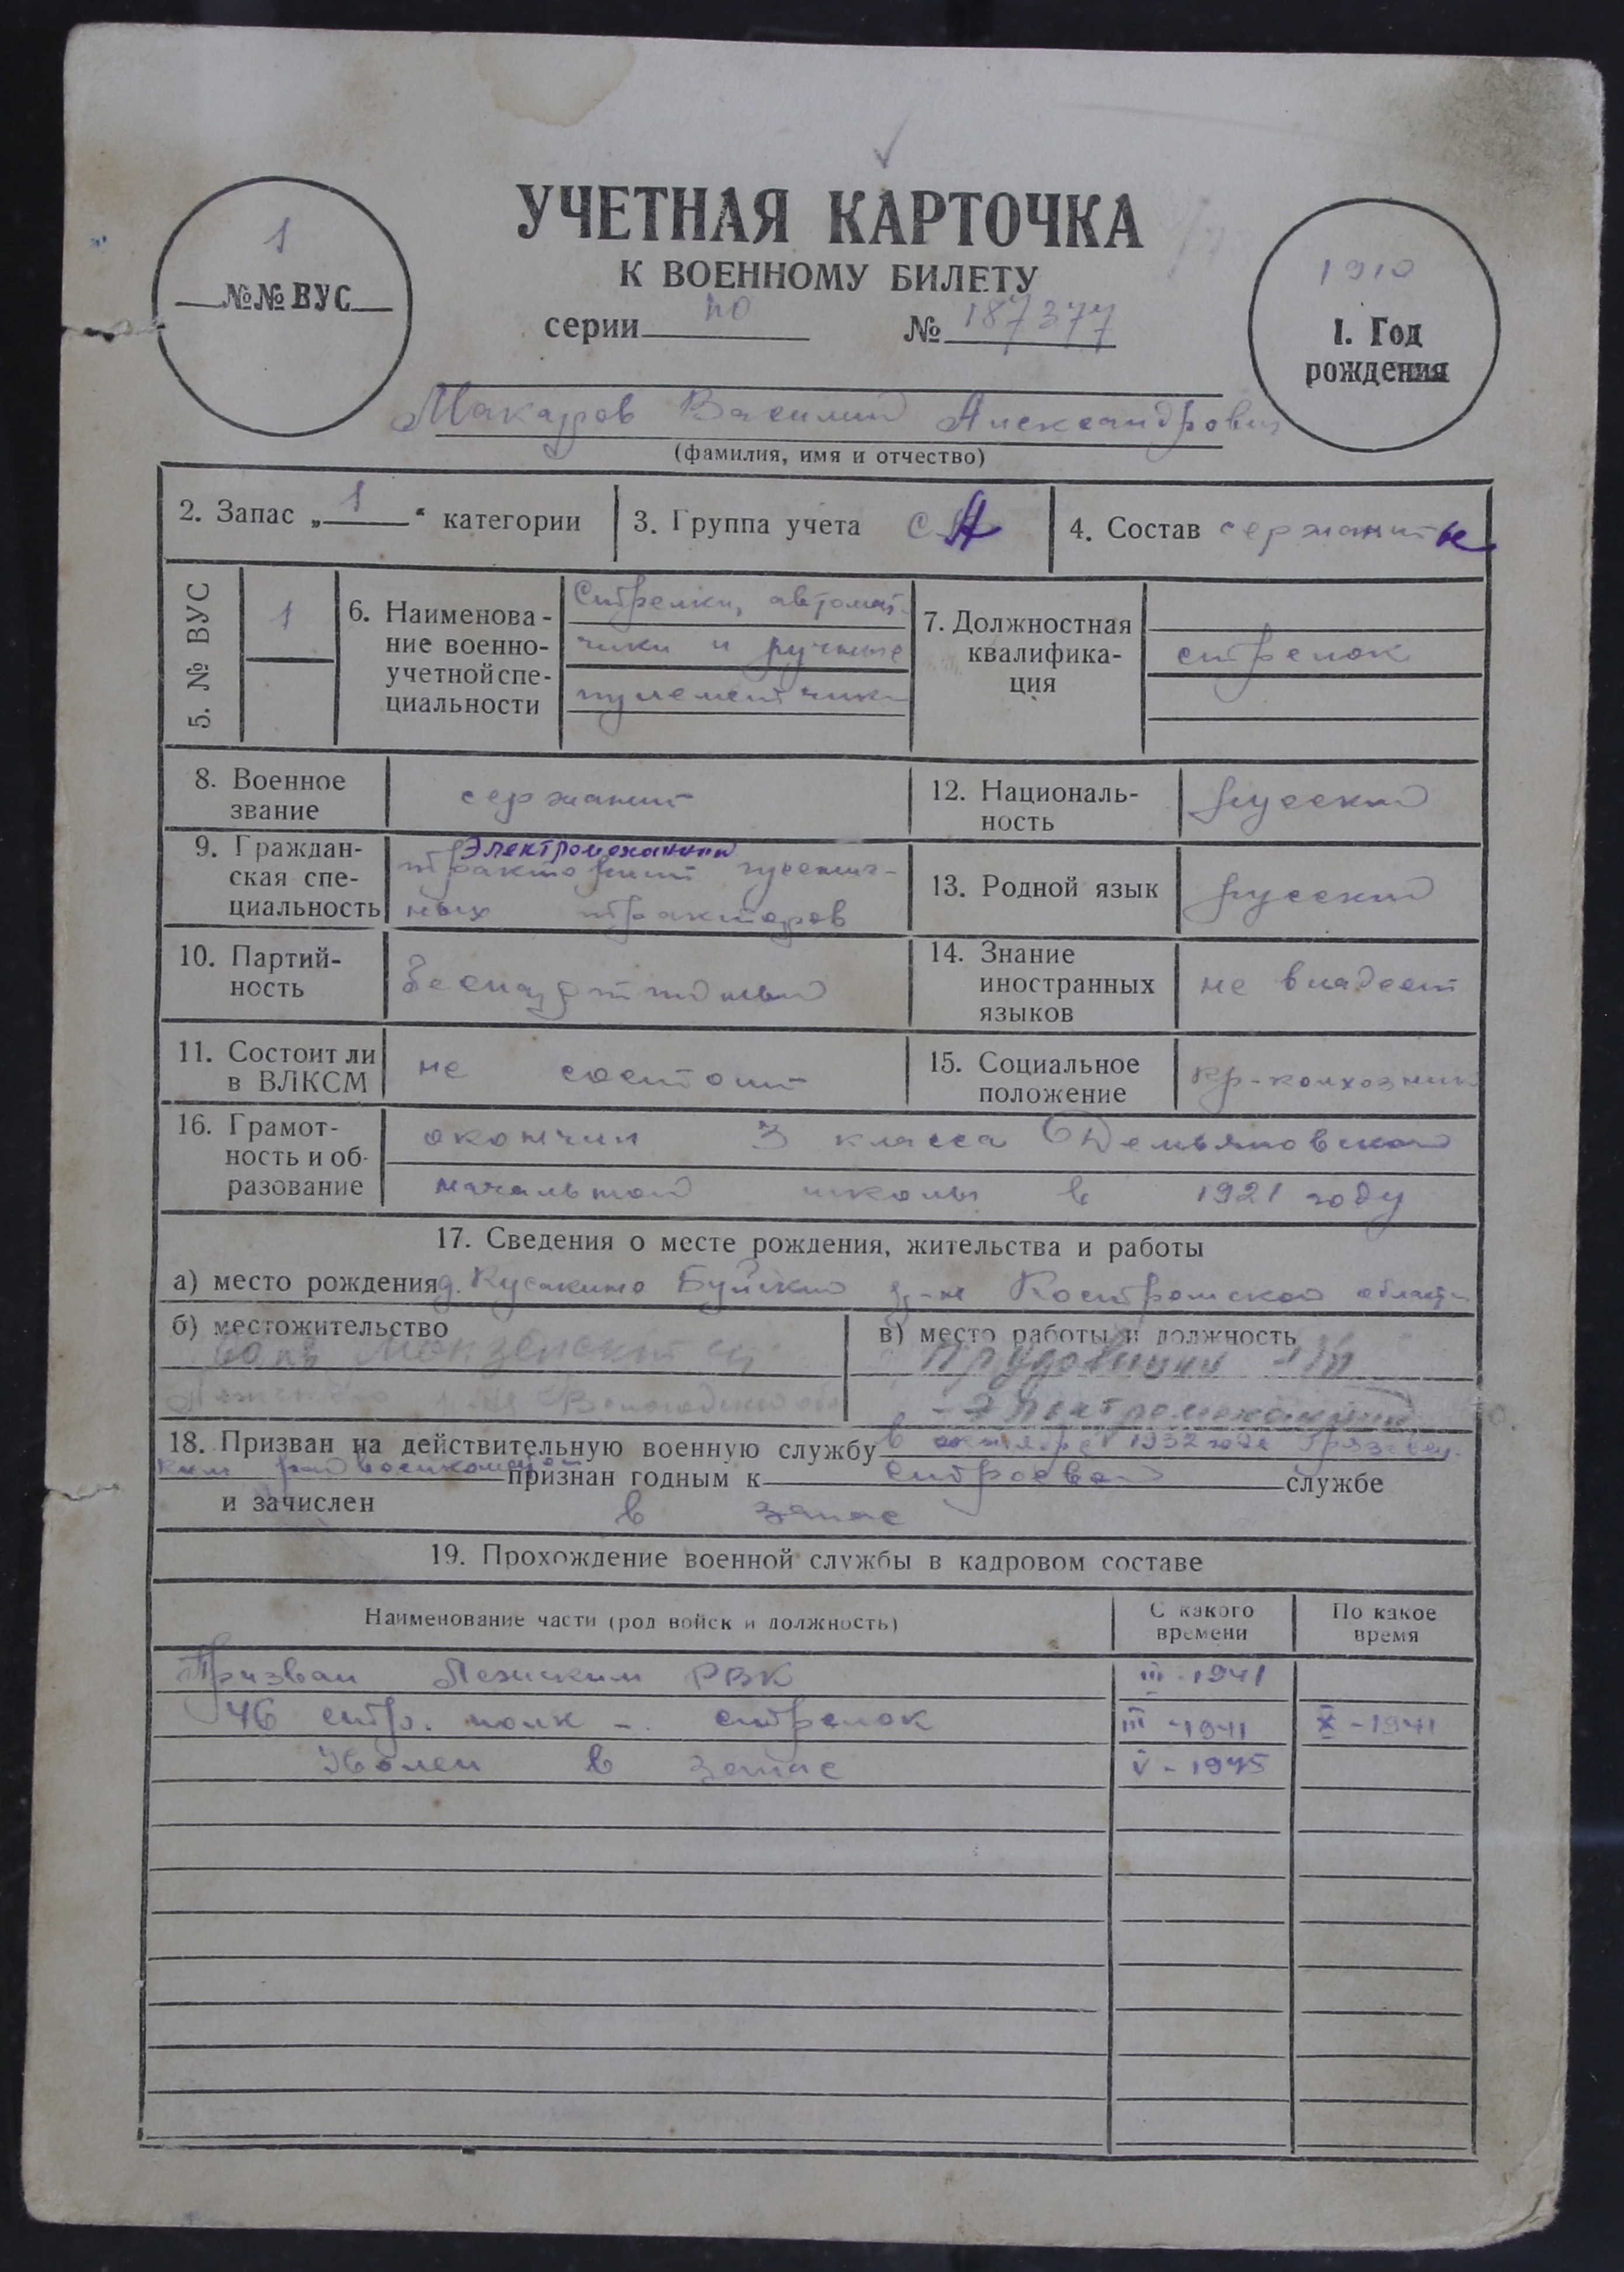 УЧЕТНАЯ КАРТОЧКА
К ВОЕННОМУ БИЛЕТУ
серии по № 187377
1
№№ ВУС
1910
1. Год
рождения
Макаров Василий Александрович
(фамилия, имя и отчество)
2. Запас „ 1 “ категории
3. Группа учета СА
4. Состав сержанты
5. № ВУС
1
6. Наименова-
ние военно-
учетной спе-
циальности
Стрелки, автомат-
чики и ручные
пулеметчики
7. Должностная
квалифика-
ция
стрелок
8. Военное
звание
сержант
12. Националь-
ность
русский
9. Граждан-
ская спе-
циальность
Электромеханик
тракторист гусенич-
ных тракторов
13. Родной язык
русский
10. Партий-
ность
беспартийный
14. Знание
иностранных
языков
не владеет
11. Состоит ли
в ВЛКСМ
не состоит
15. Социальное
положение
кр-колхозник
16. Грамот-
ность и об-
разование
окончил 3 класса Демьяновской
начальной школы в 1921 году
17. Сведения о месте рождения, жительства и работы
а) место рождения д. Кусакино Буйский р-н Костромской области
б) местожительство
Монзенский
Вологодской обл
в) место работы и должность
- Электромеханик
18. Призван на действительную военную службу в октябре 1932 года Грязовец-
ким райвоенкоматом признан годным к строевой службе
и зачислен в запас
19. Прохождение военной службы в кадровом составе
Наименование части (род войск и должность)
С какого
времени
По какое
время
Призван Лежским РВК III - 1941
46 стр. полк - стрелок III - 1941 X - 1941
Уволен в запас V - 1945